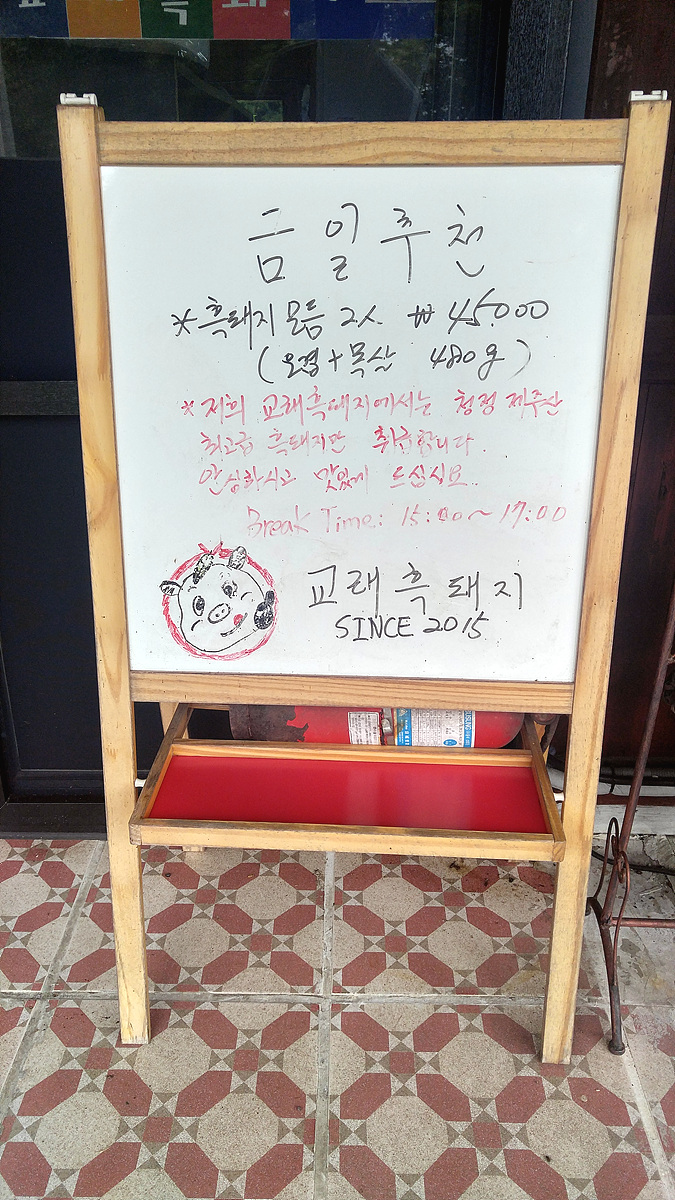 교 래 흑 돼 지
금 일 추 천
*흑돼지 모듬 2人. ₩ 45.000
(오겹+목살 480g)
*저희 교래흑돼지에서는 청정 제주산
최고급 흑돼지만 취급합니다.
안심하시고 맛있게 드십시요..
Break Time: 15:00~17:00
교래흑돼지
SINCE 2015